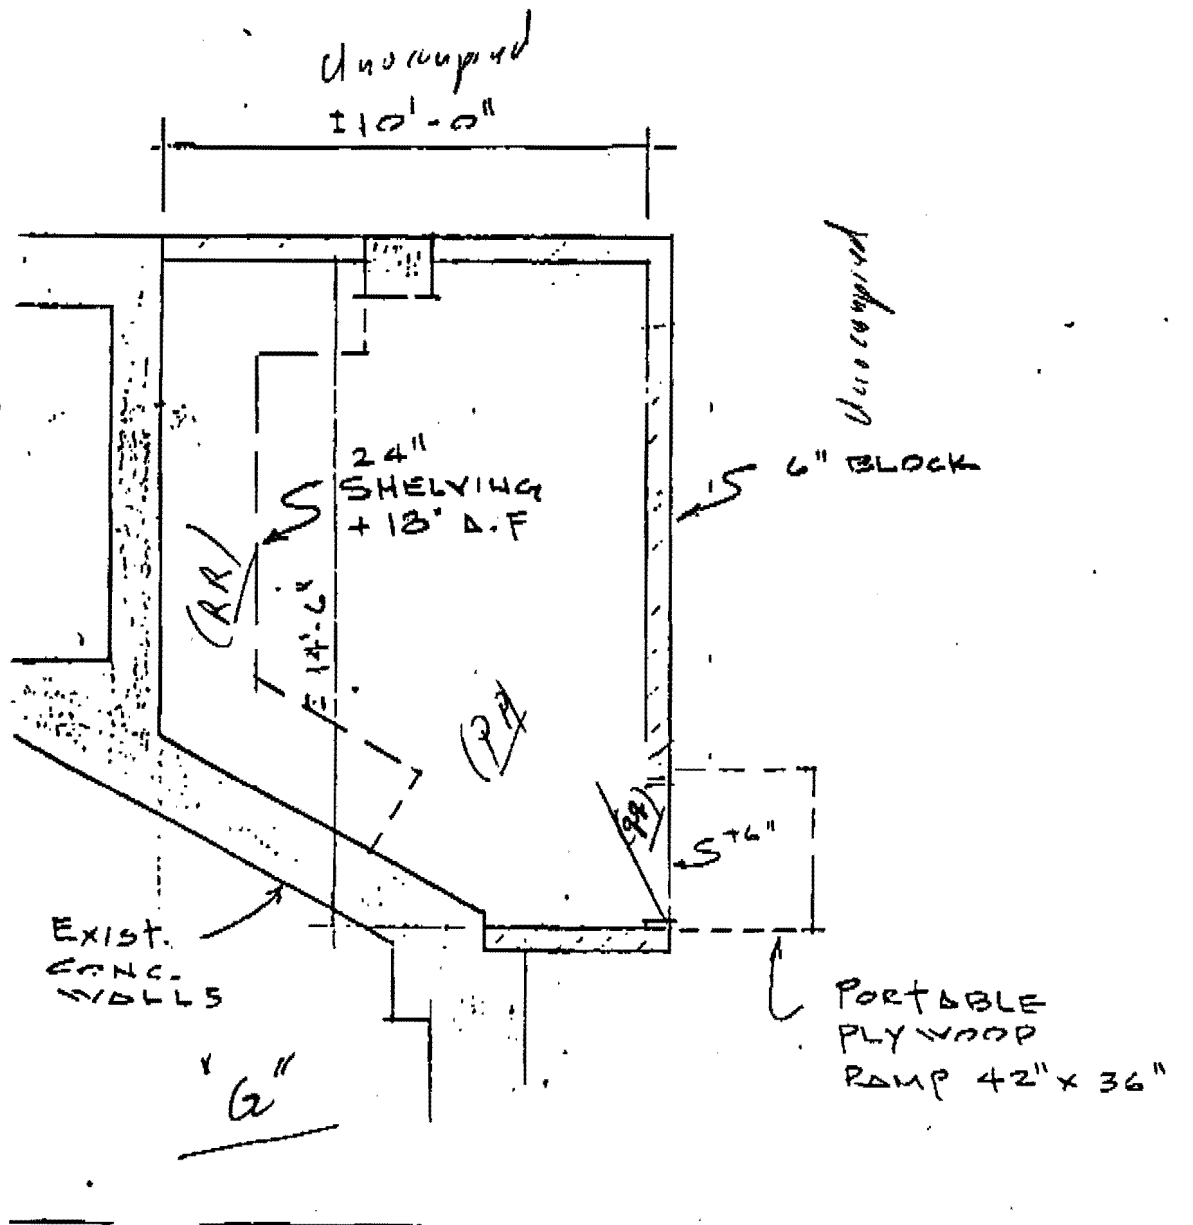 Unoccupied
±10'-0"
Unoccupied
6" BLOCK
24"
SHELVING
+18" A.F
(RR)
± 14'-6"
(PH)
+6"
EXIST.
CONC.
WALLS
PORTABLE
PLYWOOD
RAMP 42" x 36"
"G"